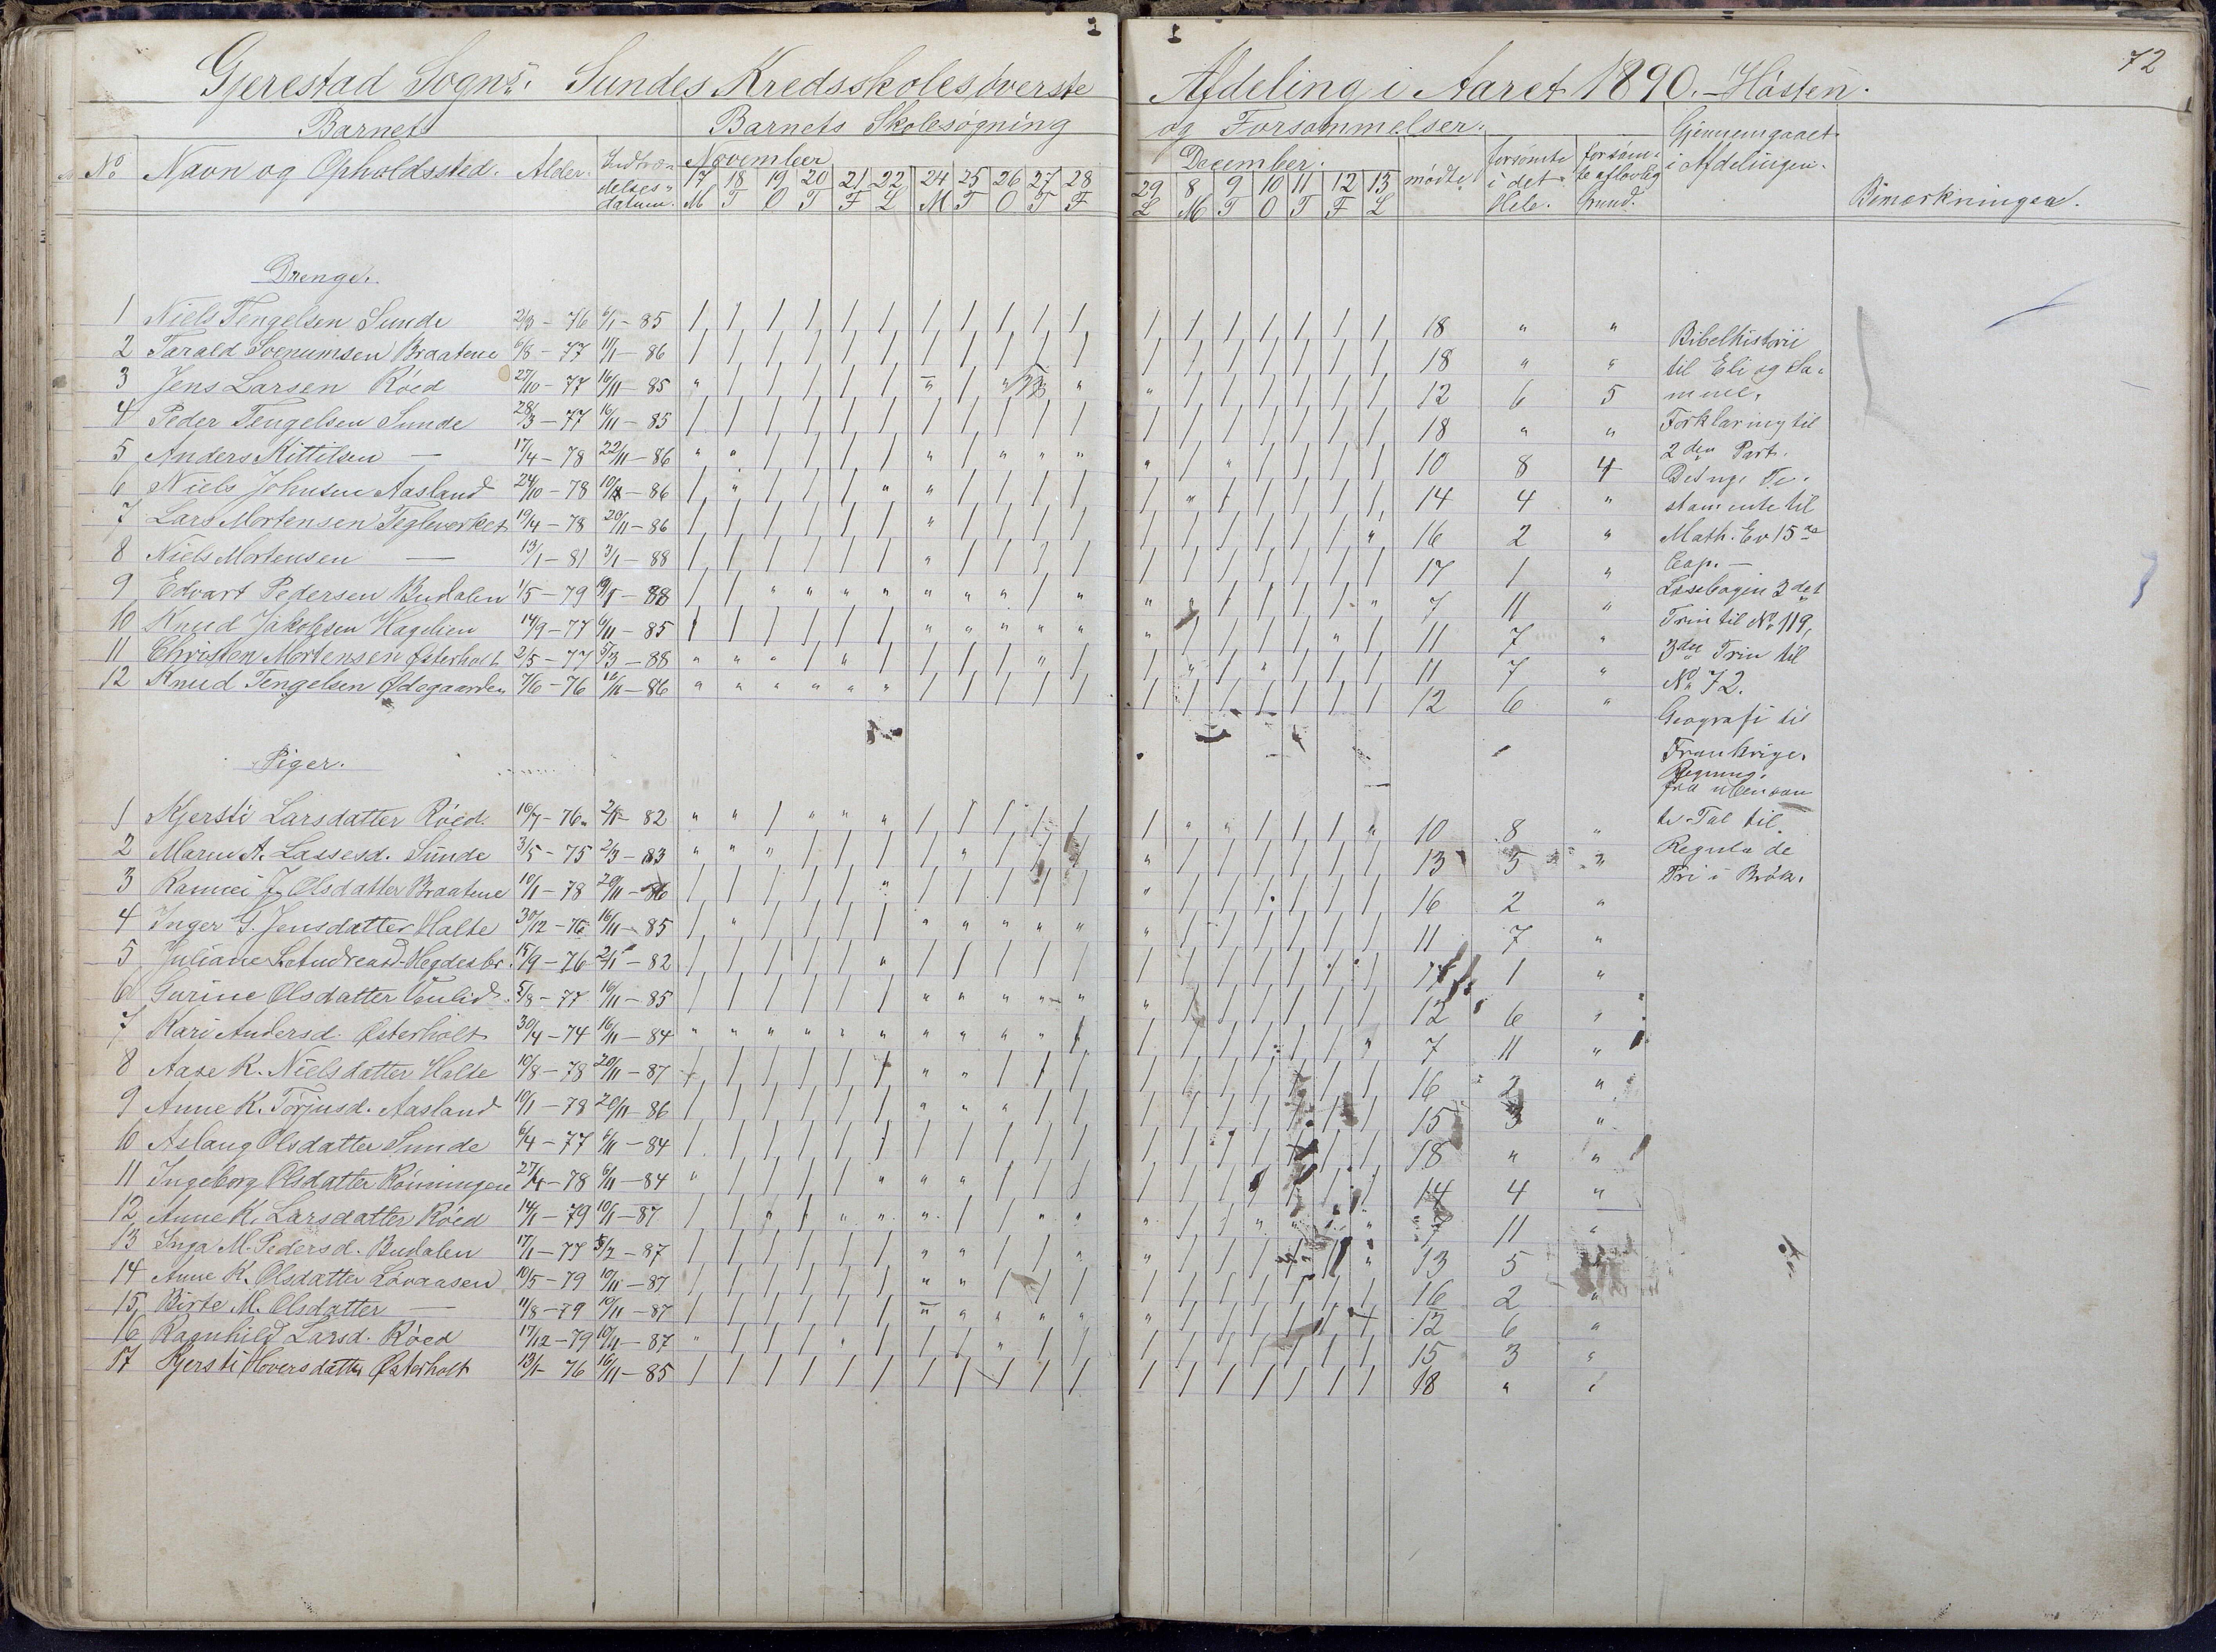 72
Gjerestad Sogns. Sundes Kredsskoles øverste Afdeling i Aaret 1890. - Høsten.
Barnets Barnets Skolesøgning og Forsømmelser. Gjennemgaaet i Afdelingen.
No Navn og Opholdssted. Alder. Indtrædelses datum. November December. mødte forsømte i det Hele. forsømte aflovlig Grund. Bemærkninger.
17 18 19 20 21 22 24 25 26 27 28 29 8 9 10 11 12 13
M T O T F L M T O T F L M T O T F L
Drenge.
1 Niels Tengelsen Sunde 2/3 - 76 6/1 - 85 18 " "
2 Tarald Braatene 6/8 - 77 10/1 - 86 18 " "
3 Jens Larsen Röed 27/10 - 77 16/11 - 85 12 6 5
4 Peder Tengelsen Sunde 28/3 - 77 16/11 - 85 18 " "
5 Anders Kittilsen — 17/4 - 78 22/11 - 86 10 8 4
6 Niels Johnsen Aasland 24/10 - 78 - 86 14 4 "
7 Lars Mortensen Teglverket 19/4 - 78 20/11 - 86 16 2 "
8 Niels Mortensen — 13/1 - 81 3/1 - 88 17 1 "
9 Edvart Pedersen Budalen 1/5 - 79 - 88 7 11 "
10 Knud Jakobsen Hagelien 14/9 - 77 6/11 - 85 11 7 "
11 Christen Mortensen Østerholt 2/5 - 77 5/3 - 88 11 7 "
12 Knud Tengelsen Ødegaarden 7/6 - 76 - 86 12 6 "
Piger.
1 Kjersti Larsdatter Röed. 10/7 - 76 - 82 10 8 "
2 Maren A. Lassesd. Sunde 3/5 - 75 2/3 - 83 13 5 "
3 Olsdatter Braatene 10/1 - 78 20/11 - 86 16 2 "
4 Inger G. Jensdatter Halte 30/12 - 76 16/11 - 85 11 7 "
5 Juliane Andreasd. 15/9 - 76 2/1 - 82 17 1 "
6 Gurine Olsdatter 5/8 - 77 16/11 - 85 12 6 "
7 Kari Andersd. Østerholt 30/4 - 74 16/11 - 84 7 11 "
8 Aase K. Nielsdatter Halte 10/8 - 78 20/11 - 87 16 2 "
9 Anne K. Torjusd. Aasland 10/1 - 78 20/11 - 86 15 3 "
10 Aslaug Olsdatter Sunde 6/4 - 77 6/11 - 84 18 " "
11 Ingeborg Olsdatter Rönningen 27/4 - 78 6/11 - 84 14 4 "
12 Anne K. Larsdatter Röed 14/1 - 79 10/1 - 87 7 11 "
13 Inga M. Pedersd. Budalen 17/1 - 77 5/2 - 87 13 5 "
14 Anne K. Olsdatter Lövaasen 10/5 - 79 10/11 - 87 16 2 "
15 Birte M. Olsdatter — 11/8 - 79 10/11 - 87 12 6 "
16 Ragnhild Larsd. Röed 17/12 - 79 10/11 - 87 15 3 "
17 Kjersti Hoversdatter Østerholt 13/1 - 76 16/11 - 85 18 " "
Bibelhistorie
til Eli og Sa-
muel.
Forklaring til
2den Part.
Det nye Te-
stamente til
Math. Ev 15de
Cap. —
Læsebogen 3det
Trin til No 119,
3die Trin til
No 72.
Geografi til
Frankrige.
Regning.
fra ubenævn
te Tal til
Regula de
Tri i Brök.